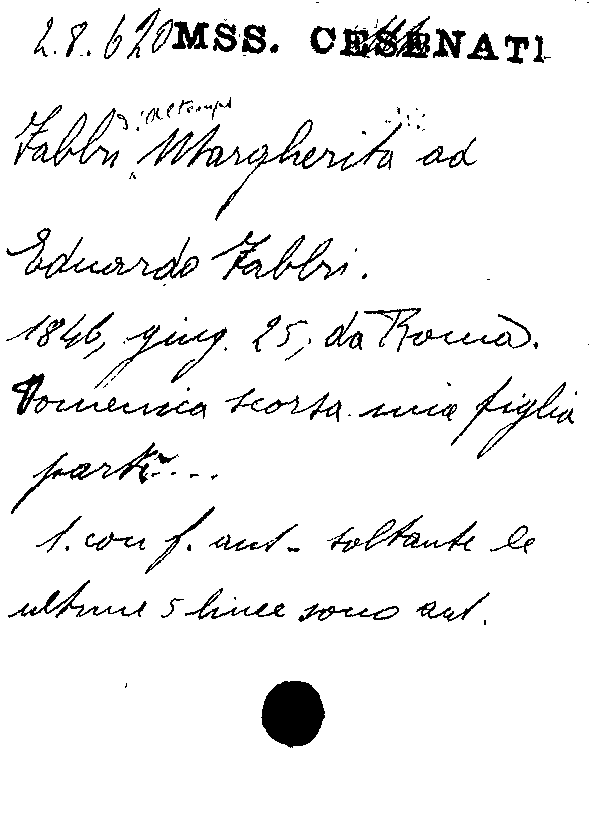 2.8.620 MSS. CESENATI
d'Altemps
Fabbri, Margherita ad
Eduardo Fabbri.
1846, giug. 25, da Roma.
Domenica scorsa mia figlia
partì...
1. con f. aut. - soltante le
ultime 5 linee sono aut.